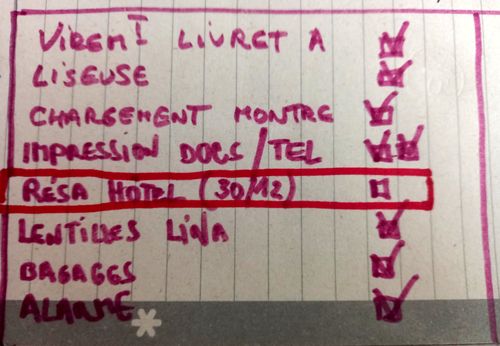 VIREMT LIVRET A
LISEUSE
CHARGEMENT MONTRE
IMPRESSION DOCS/TEL
RÉSA HOTEL (30/12)
LENTILLES LINA
BAGAGES
ALARME